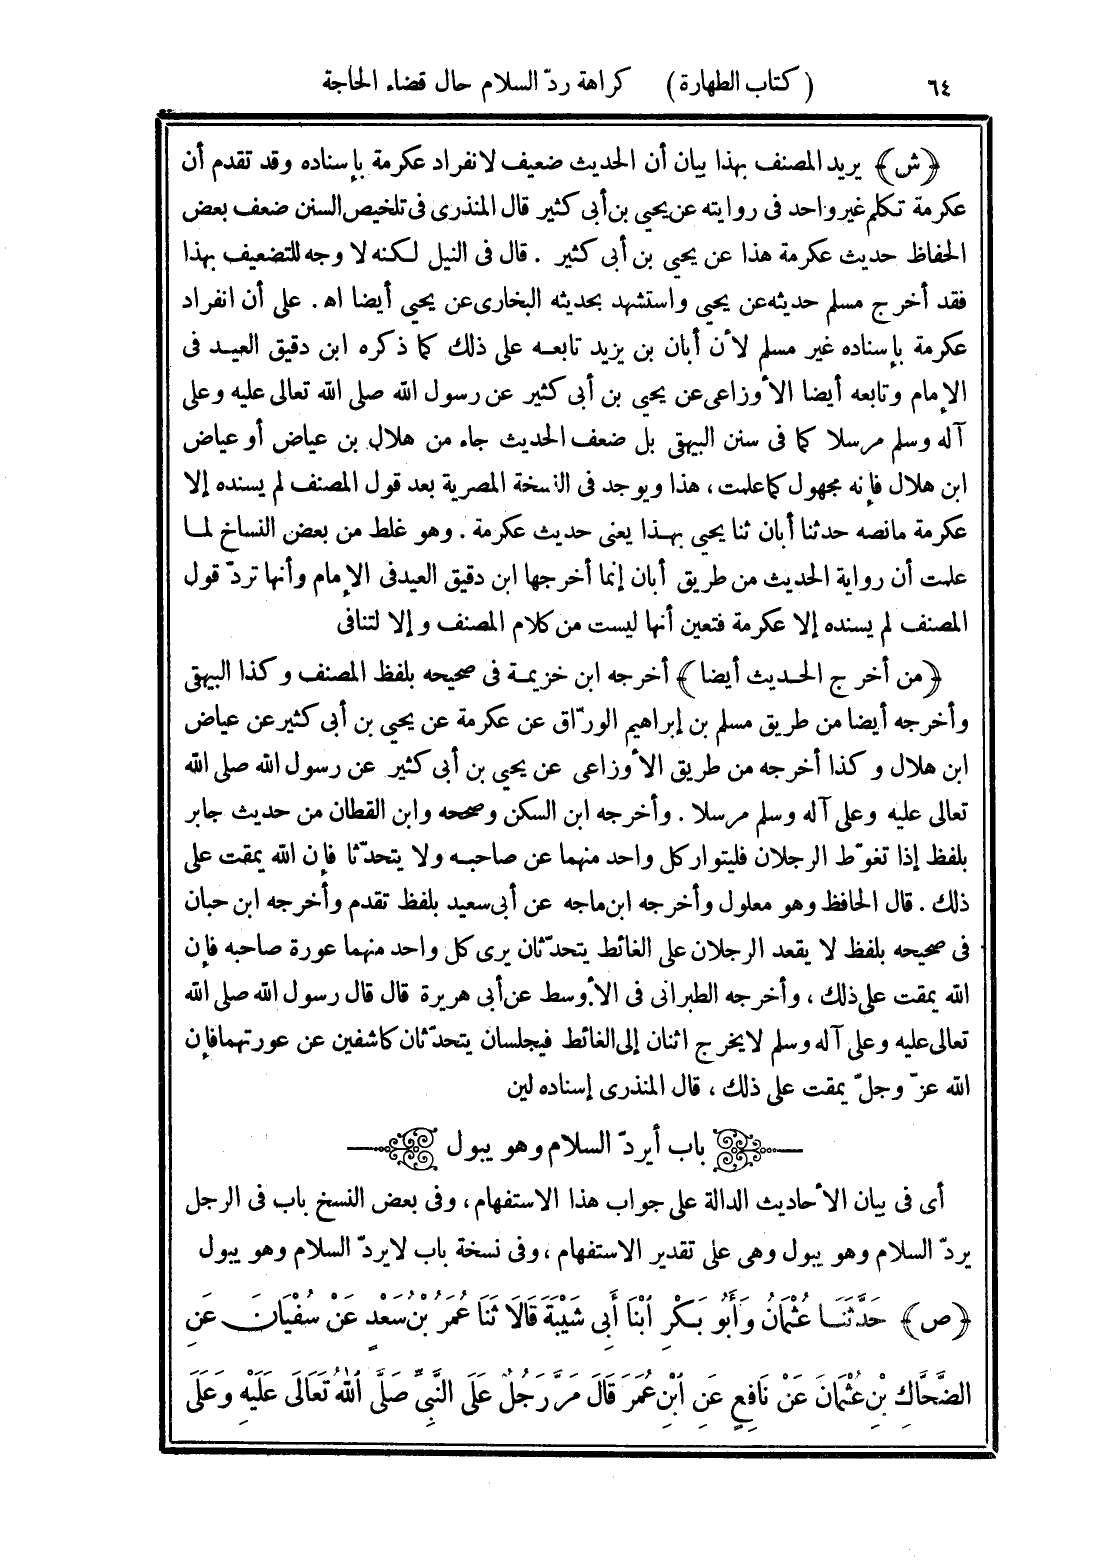 ٦٤ (كتاب الطهارة) كراهة ردّ السلام حال قضاء الحاجة
﴿ش﴾ يريد المصنف بهذا بيان أن الحديث ضعيف لانفراد عكرمة بإسناده وقد تقدم أن
عكرمة تكلم غير واحد فى روايته عن يحيى بن أبى كثير قال المنذرى فى تلخيص السنن ضعف بعض
الحفاظ حديث عكرمة هذا عن يحيى بن أبى كثير . قال فى النيل لكنه لا وجه للتضعيف بهذا
فقد أخرج مسلم حديثه عن يحيى واستشهد بحديثه البخارى عن يحيى أيضا اه. على أن انفراد
عكرمة بإسناده غير مسلم لأن أبان بن يزيد تابعه على ذلك كما ذكره ابن دقيق العيد فى
الإمام وتابعه أيضا الأوزاعى عن يحيى بن أبى كثير عن رسول الله صلى الله تعالى عليه وعلى
آله وسلم مرسلا كما فى سنن البيهقى بل ضعف الحديث جاء من هلال بن عياض أو عياض
ابن هلال فإنه مجهول كما علمت، هذا ويوجد فى النسخة المصرية بعد قول المصنف لم يسنده إلا
عكرمة مانصه حدثنا أبان ثنا يحيى بهذا يعنى حديث عكرمة . وهو غلط من بعض النساخ لما
علمت أن رواية الحديث من طريق أبان إنما أخرجها ابن دقيق العيد فى الإمام وأنها تردّ قول
المصنف لم يسنده إلا عكرمة فتعين أنها ليست من كلام المصنف وإلا لتنافى
﴿من أخرج الحديث أيضا﴾ أخرجه ابن خزيمة فى صحيحه بلفظ المصنف وكذا البيهقى
وأخرجه أيضا من طريق مسلم بن إبراهيم الورّاق عن عكرمة عن يحيى بن أبى كثير عن عياض
ابن هلال وكذا أخرجه من طريق الأوزاعى عن يحيى بن أبى كثير عن رسول الله صلى الله
تعالى عليه وعلى آله وسلم مرسلا . وأخرجه ابن السكن وصححه وابن القطان من حديث جابر
بلفظ إذا تغوّط الرجلان فليتوار كل واحد منهما عن صاحبه ولا يتحدّثا فإن الله يمقت على
ذلك . قال الحافظ وهو معلول وأخرجه ابن ماجه عن أبى سعيد بلفظ تقدم وأخرجه ابن حبان
فى صحيحه بلفظ لا يقعد الرجلان على الغائط يتحدّثان يرى كل واحد منهما عورة صاحبه فإن
الله يمقت على ذلك، وأخرجه الطبرانى فى الأوسط عن أبى هريرة قال قال رسول الله صلى الله
تعالى عليه وعلى آله وسلم لا يخرج اثنان إلى الغائط فيجلسان يتحدّثان كاشفين عن عورتهما فإن
الله عزّ وجلّ يمقت على ذلك، قال المنذرى إسناده لين
باب أيردّ السلام وهو يبول
أى فى بيان الأحاديث الدالة على جواب هذا الاستفهام، وفى بعض النسخ باب فى الرجل
يردّ السلام وهو يبول وهى على تقدير الاستفهام، وفى نسخة باب لا يردّ السلام وهو يبول
﴿ص﴾ حَدَّثَنَا عُثْمَانُ وَأَبُو بَكْرِ ابْنَا أَبِى شَيْبَةَ قَالَا ثَنَا عُمَرُ بْنُ سَعْدٍ عَنْ سُفْيَانَ عَنِ
الضَّحَّاكِ بْنِ عُثْمَانَ عَنْ نَافِعٍ عَنِ ابْنِ عُمَرَ قَالَ مَرَّ رَجُلٌ عَلَى النَّبِىِّ صَلَّى اللهُ تَعَالَى عَلَيْهِ وَعَلَى